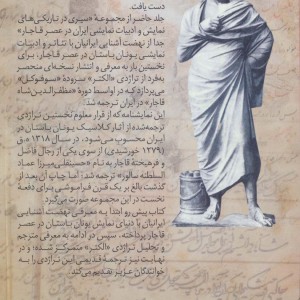 دست یافت.
جلد حاضر از مجموعهٔ «سیری در تاریکی‌های
نمایش و ادبیات نمایشی ایران در عصر قاجار»
جدا از نهضت آشنایی ایرانیان با تئاتر و ادبیات
نمایشی یونان باستان در عصر قاجار، برای
نخستین بار به معرفی و انتشار نسخه‌ی منحصر
به‌فرد از تراژدی «الکتر» سرودهٔ «سوفوکل»
می‌پردازد که در اواسط دورهٔ «مظفرالدین‌شاه
قاجار» در ایران ترجمه شد.
این نمایشنامه که از قرار معلوم نخستین تراژدی
ترجمه‌شده از آثار کلاسیک یونان باستان در
ایران محسوب می‌شود، در سال ۱۳۱۸ ه.ق
(۱۲۷۹ خورشیدی) از سوی یکی از رجال فاضل
و فرهیخته قاجار به نام «حسینقلی‌میرزا عماد
السلطنه سالور» ترجمه شد؛ اما چاپ آن بعد از
گذشت بالغ بر یک قرن فراموشی برای دفعهٔ
نخست در این مجموعه صورت می‌گیرد.
کتاب پیش رو ابتدا به معرفی نهضت آشنایی
ایرانیان با دنیای نمایش یونان باستان در عصر
قاجار پرداخته، سپس در ادامه به معرفی مترجم
و تحلیل تراژدی «الکتر» متمرکز شده؛ و در
نهایت نیز ترجمهٔ قدیمی این تراژدی را به
خوانندگان عزیز تقدیم می‌کند.